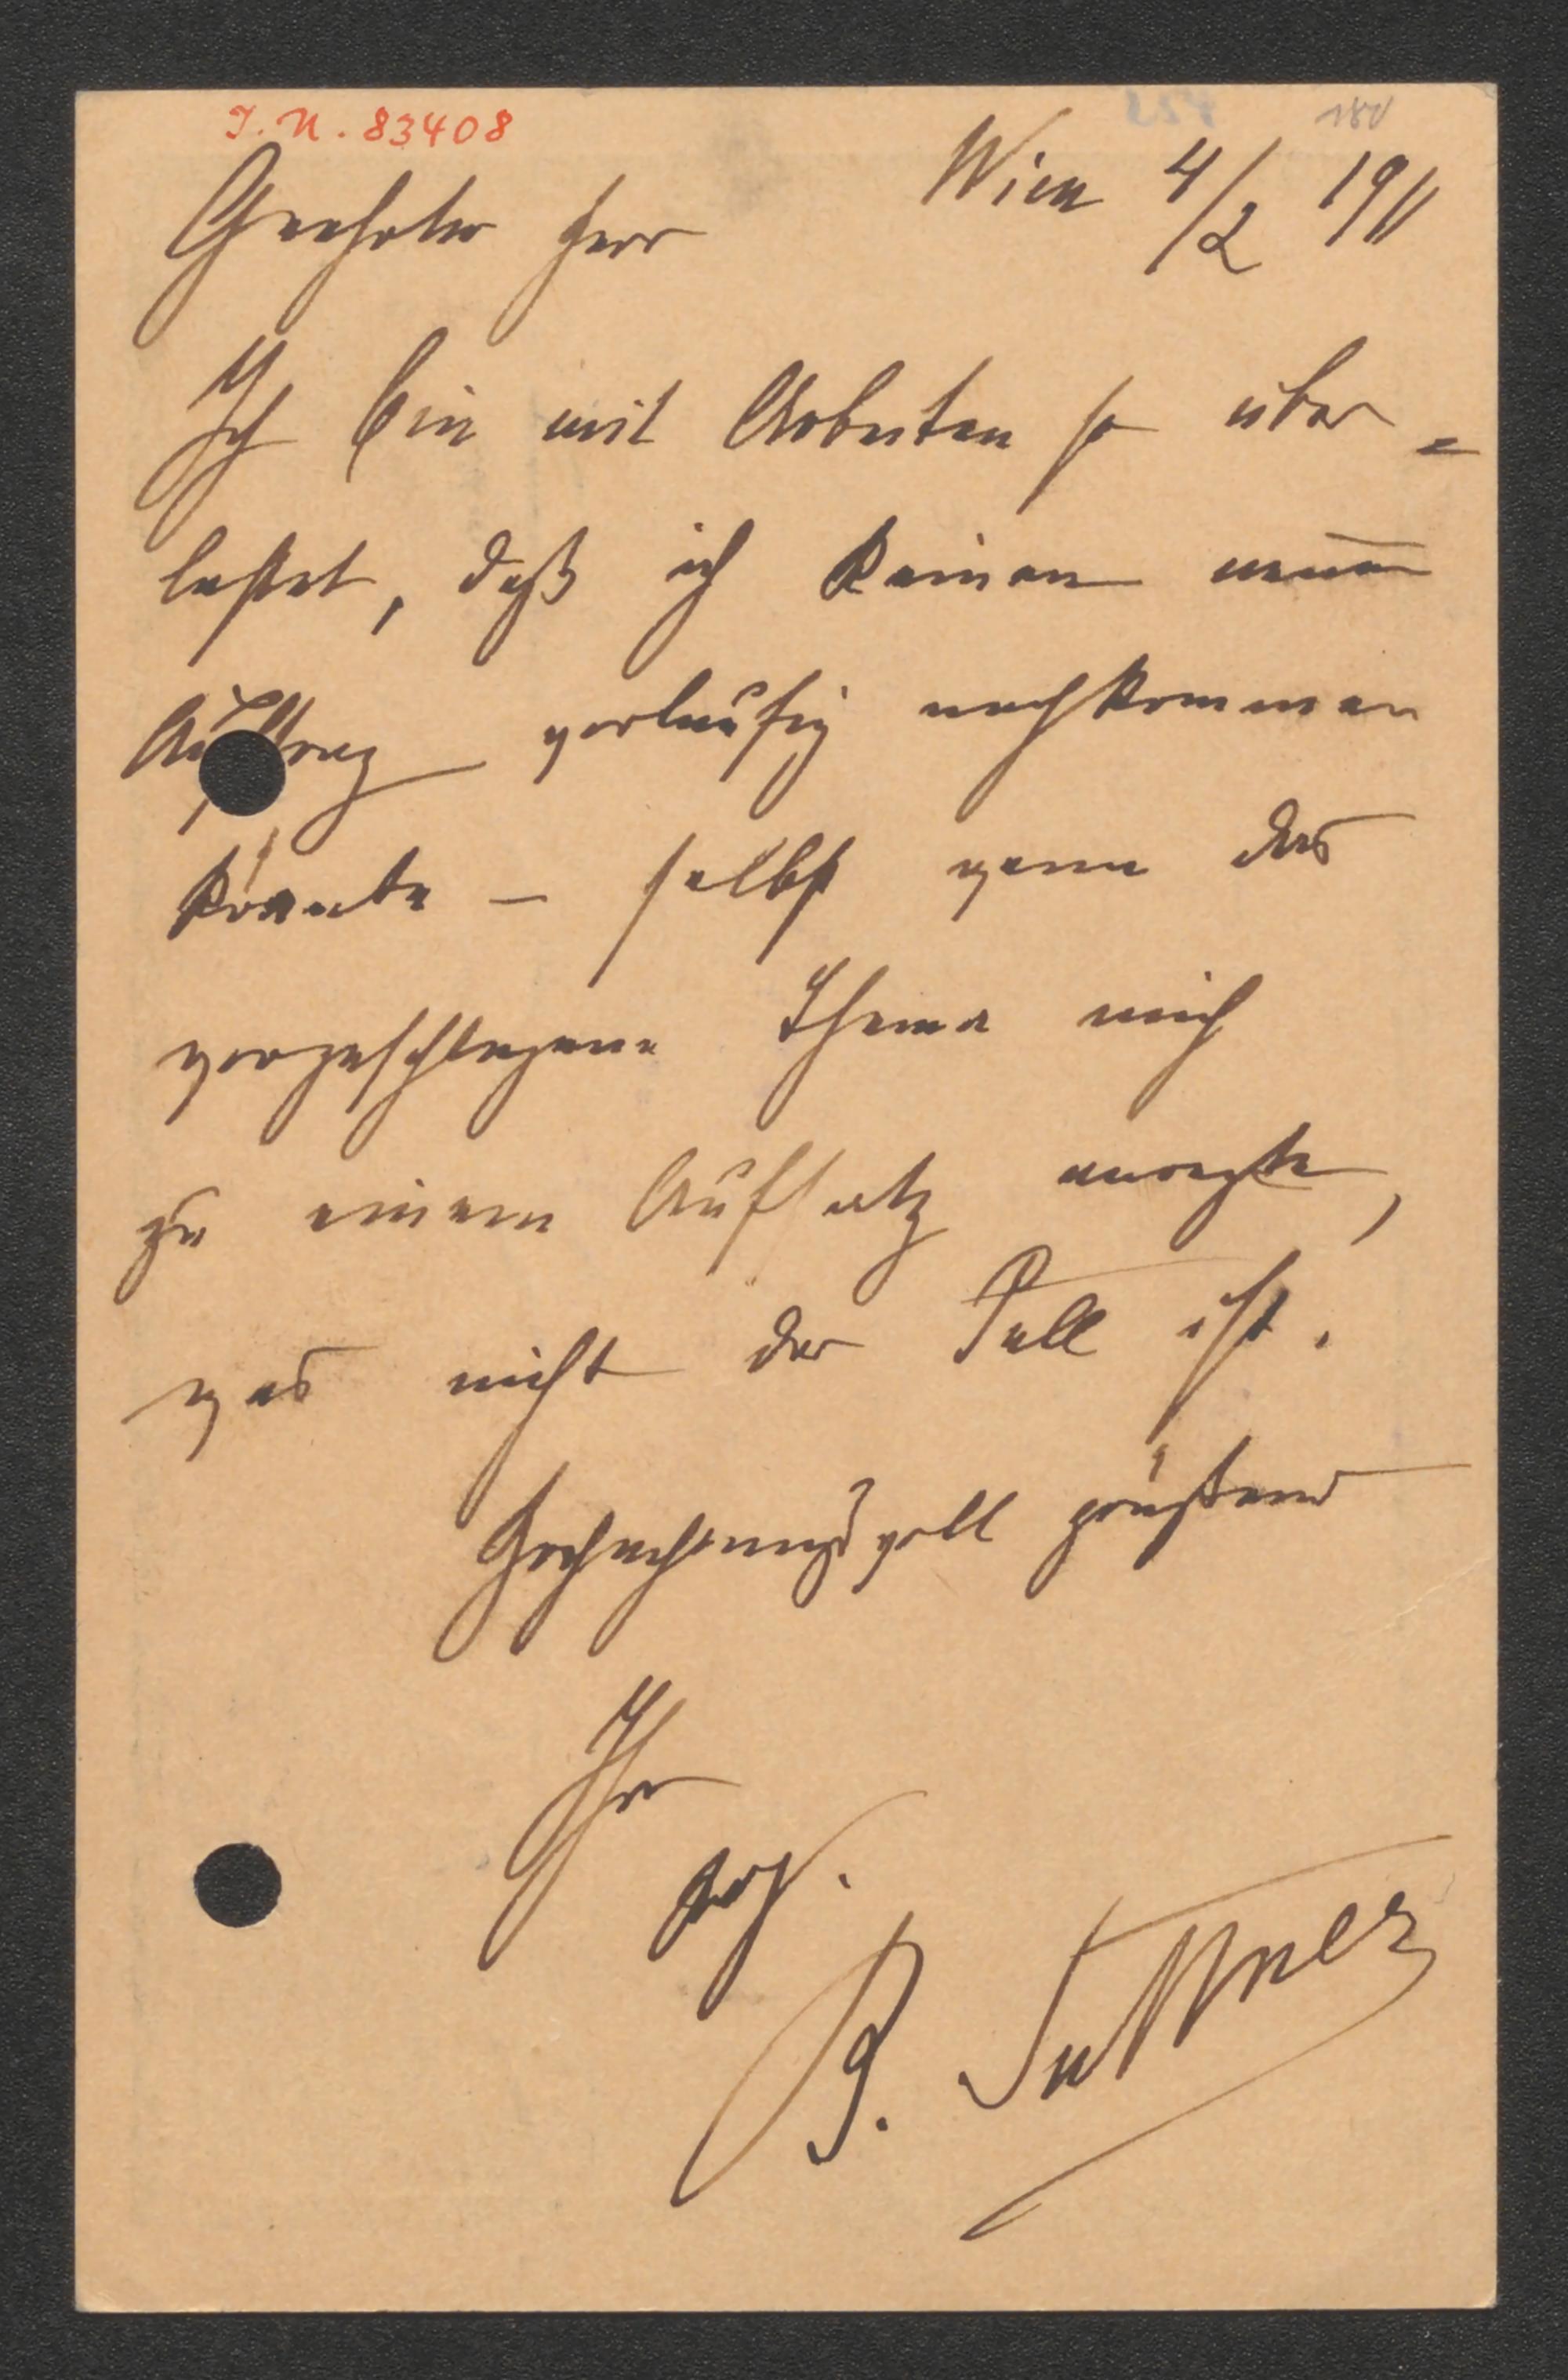 I. N. 83408
180
Wien 4/2 1911
Geehrter Herr
Ich bin mit Arbeiten so über=
lastet, daß ich keinem neuen
Auftrag vorläufig nachkommen
könnte – selbst wenn das
vorgeschlagene Thema mich
zu einem Aufsatz anregte,
was nicht der Fall ist.
Hochachtungsvoll grüßend
Ihre
B. Suttner